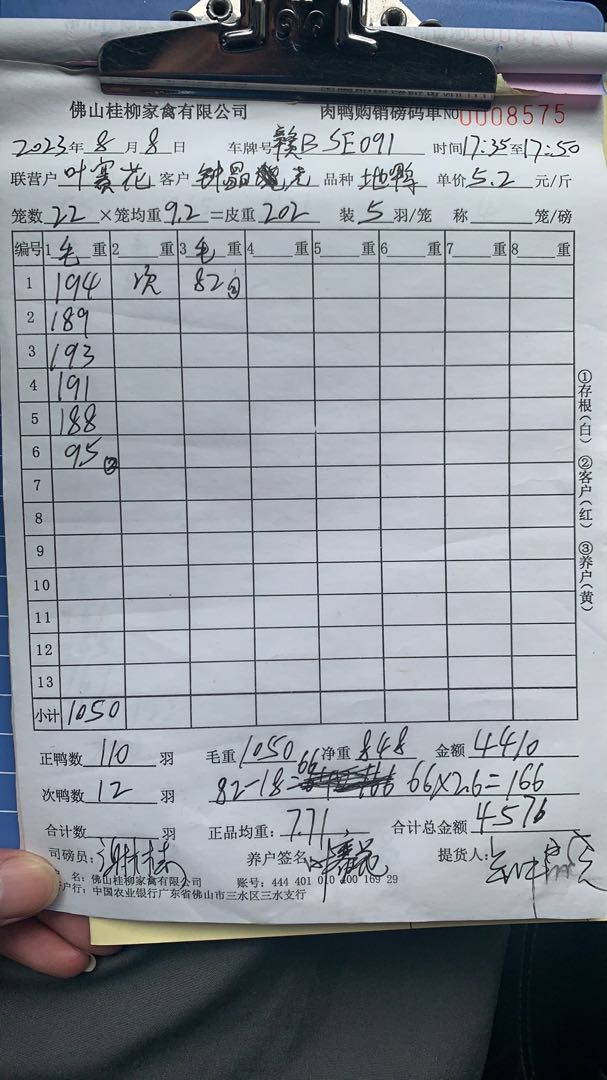 佛山桂柳家禽有限公司 肉鸭购销磅码单No 0008575
2023年 8 月 8 日 车牌号 赣B SE091 时间17:35至17:50
联营户 叶赛花 客户 钟 品种 地鸭 单价5.2 元/斤
笼数 22 ×笼均重9.2=皮重 202 装 5 羽/笼 称 笼/磅
编号 1 毛 重 2 重 3 毛 重 4 重 5 重 6 重 7 重 8 重
1 194 次 82②
2 189
3 193
4 191
5 188
6 95②
7
8
9
10
11
12
13
小计 1050
①存根(白) ②客户(红) ③养户(黄)
正鸭数 110 羽 毛重 1050 净重 848 金额 4410
次鸭数 12 羽 82-18=66 66×2.6=166
合计数 羽 正品均重: 7.71 合计总金额 4576
司磅员: 养户签名 叶赛花 提货人:
名: 佛山桂柳家禽有限公司 账号: 444 401 010 400 169 29
户行: 中国农业银行广东省佛山市三水区三水支行